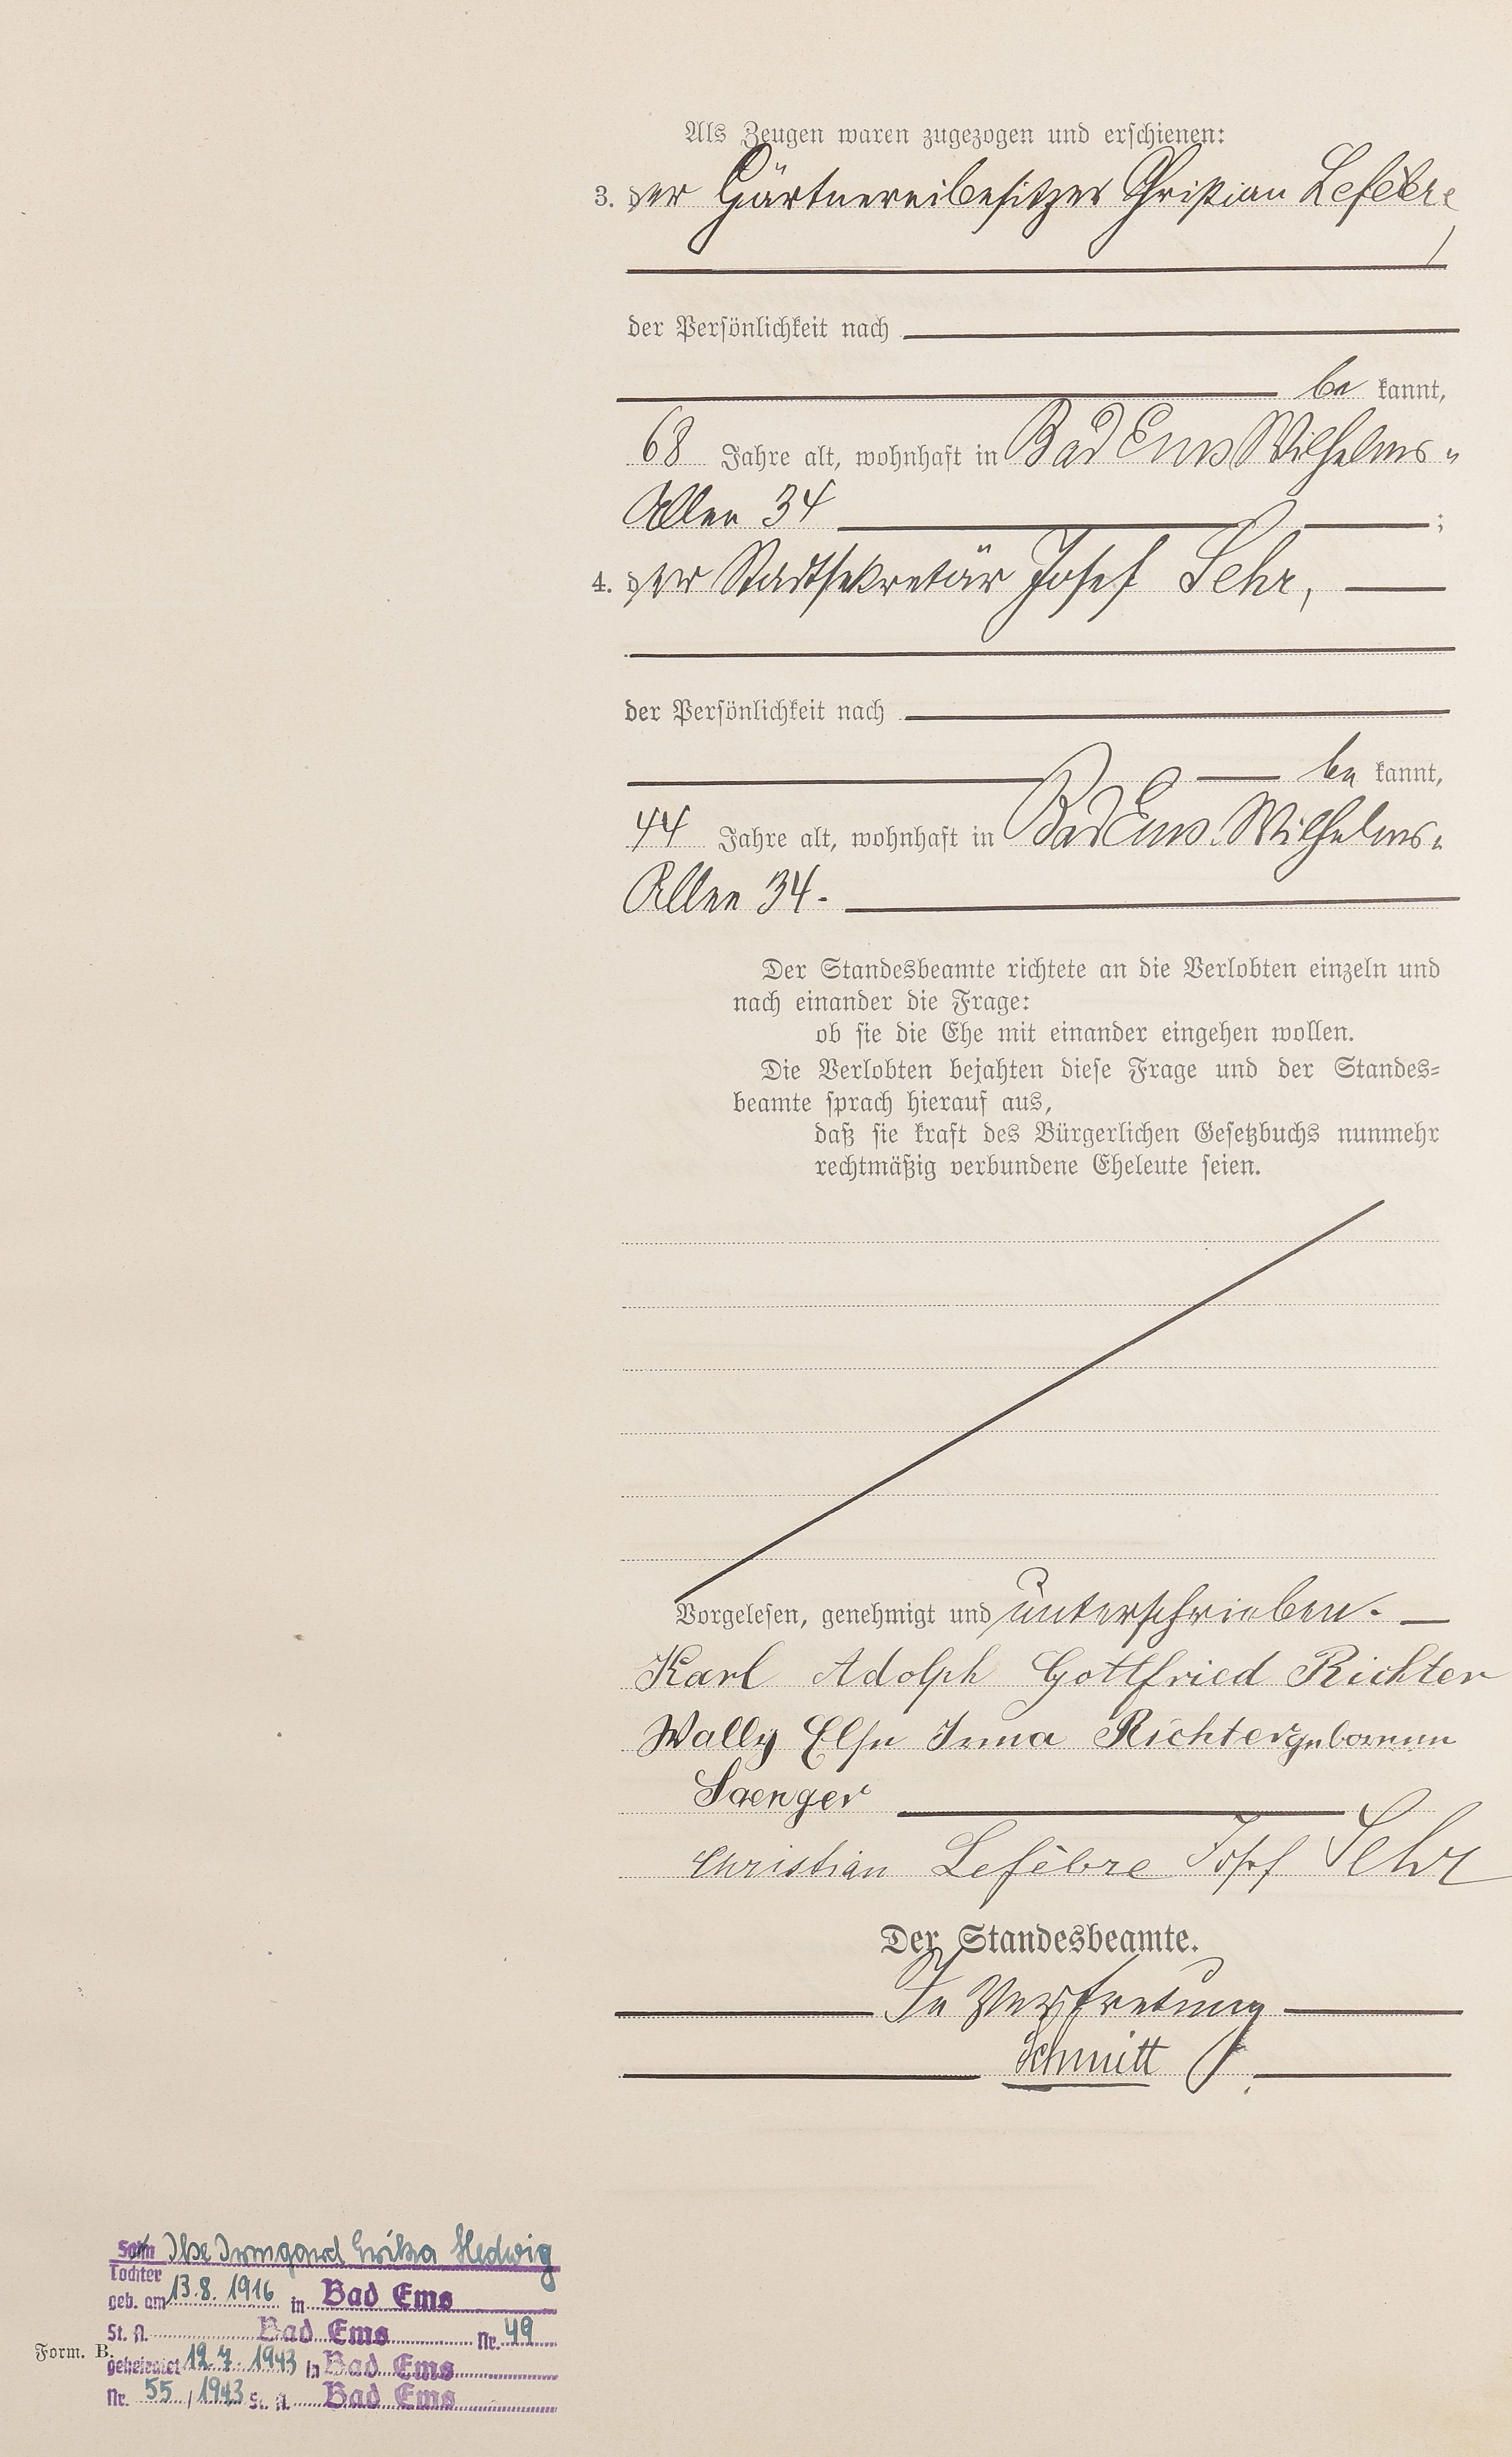 Als Zeugen waren zugezogen und erschienen:
3. der Gärtnereibesitzer Christian Lefèbre,
der Persönlichkeit nach
be kannt,
68 Jahre alt, wohnhaft in Bad Ems Wilhelms-
Allee 34 ;
4. der Stadtsekretär Josef Sehr,
der Persönlichkeit nach
be kannt,
44 Jahre alt, wohnhaft in Bad Ems. Wilhelms-
Allee 34.
Der Standesbeamte richtete an die Verlobten einzeln und
nach einander die Frage:
ob sie die Ehe mit einander eingehen wollen.
Die Verlobten bejahten diese Frage und der Standes-
beamte sprach hierauf aus,
daß sie kraft des Bürgerlichen Gesetzbuchs nunmehr
rechtmäßig verbundene Eheleute seien.
Vorgelesen, genehmigt und unterschrieben.
Karl Adolph Gottfried Richter
Wally Else Irma Richter geborenen
Saenger
Christian Lefèbre Josef Sehr
Der Standesbeamte.
In Vertretung
Schmitt
Sohn Ilse Irmgard Erika Hedwig
Tochter
geb. am 13.8.1916 in Bad Ems
St. A. Bad Ems Nr. 49
Form. B.
geheiratet 12.7.1943 in Bad Ems
Nr. 55 / 1943 St. A. Bad Ems